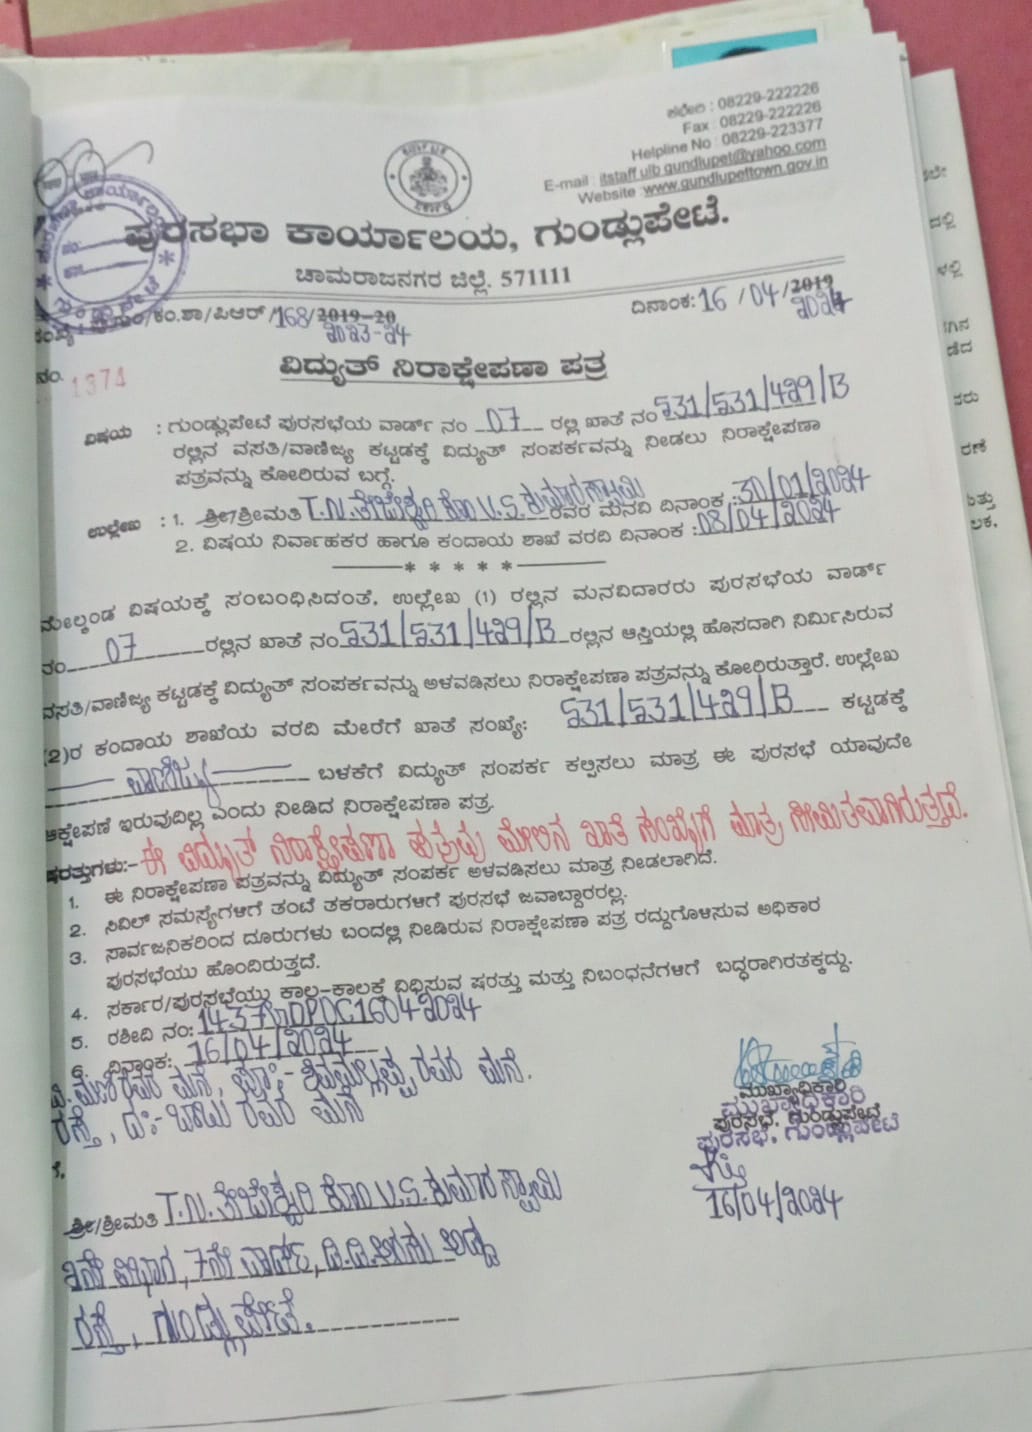 ಕಛೇರಿ : 08229-222226
Fax : 08229-222226
Helpline No : 08229-223377
E-mail : itstaff ulb gundlupet@yahoo.com
Website : www.gundlupettown.gov.in
ಪುರಸಭಾ ಕಾರ್ಯಾಲಯ, ಗುಂಡ್ಲುಪೇಟೆ.
ಚಾಮರಾಜನಗರ ಜಿಲ್ಲೆ. 571111
/ಕಂ.ಶಾ/ಪಿಆರ್/168/2019-20 ದಿನಾಂಕ:16/04/2019
2023-24 2024
ವಿದ್ಯುತ್ ನಿರಾಕ್ಷೇಪಣಾ ಪತ್ರ
ನಂ. 1374
ವಿಷಯ : ಗುಂಡ್ಲುಪೇಟೆ ಪುರಸಭೆಯ ವಾರ್ಡ್ ನಂ 07 ರಲ್ಲಿ ಖಾತೆ ನಂ 531/531/429/B
ರಲ್ಲಿನ ವಸತಿ/ವಾಣಿಜ್ಯ ಕಟ್ಟಡಕ್ಕೆ ವಿದ್ಯುತ್ ಸಂಪರ್ಕವನ್ನು ನೀಡಲು ನಿರಾಕ್ಷೇಪಣಾ
ಪತ್ರವನ್ನು ಕೋರಿರುವ ಬಗ್ಗೆ.
ಉಲ್ಲೇಖ : 1. ಶ್ರೀ/ಶ್ರೀಮತಿ T.N.ತೇಜೇಶ್ವರಿ ಕೋಂ V.S.ಕುಮಾರಸ್ವಾಮಿ ರವರ ಮನವಿ ದಿನಾಂಕ :30/01/2024
2. ವಿಷಯ ನಿರ್ವಾಹಕರ ಹಾಗೂ ಕಂದಾಯ ಶಾಖೆ ವರದಿ ದಿನಾಂಕ :08/04/2024
* * * * *
ಮೇಲ್ಕಂಡ ವಿಷಯಕ್ಕೆ ಸಂಬಂಧಿಸಿದಂತೆ, ಉಲ್ಲೇಖ (1) ರಲ್ಲಿನ ಮನವಿದಾರರು ಪುರಸಭೆಯ ವಾರ್ಡ್
ನಂ 07 ರಲ್ಲಿನ ಖಾತೆ ನಂ 531/531/429/B ರಲ್ಲಿನ ಆಸ್ತಿಯಲ್ಲಿ ಹೊಸದಾಗಿ ನಿರ್ಮಿಸಿರುವ
ವಸತಿ/ವಾಣಿಜ್ಯ ಕಟ್ಟಡಕ್ಕೆ ವಿದ್ಯುತ್ ಸಂಪರ್ಕವನ್ನು ಅಳವಡಿಸಲು ನಿರಾಕ್ಷೇಪಣಾ ಪತ್ರವನ್ನು ಕೋರಿರುತ್ತಾರೆ. ಉಲ್ಲೇಖ
(2)ರ ಕಂದಾಯ ಶಾಖೆಯ ವರದಿ ಮೇರೆಗೆ ಖಾತೆ ಸಂಖ್ಯೆ: 531/531/429/B ಕಟ್ಟಡಕ್ಕೆ
ವಾಣಿಜ್ಯ ಬಳಕೆಗೆ ವಿದ್ಯುತ್ ಸಂಪರ್ಕ ಕಲ್ಪಿಸಲು ಮಾತ್ರ ಈ ಪುರಸಭೆ ಯಾವುದೇ
ಆಕ್ಷೇಪಣೆ ಇರುವುದಿಲ್ಲ ಎಂದು ನೀಡಿದ ನಿರಾಕ್ಷೇಪಣಾ ಪತ್ರ.
ಷರತ್ತುಗಳು:- ಈ ವಿದ್ಯುತ್ ನಿರಾಕ್ಷೇಪಣಾ ಪತ್ರವು ಮೇಲಿನ ಖಾತೆ ಸಂಖ್ಯೆಗೆ ಮಾತ್ರ ಸೀಮಿತವಾಗಿರುತ್ತದೆ.
1. ಈ ನಿರಾಕ್ಷೇಪಣಾ ಪತ್ರವನ್ನು ವಿದ್ಯುತ್ ಸಂಪರ್ಕ ಅಳವಡಿಸಲು ಮಾತ್ರ ನೀಡಲಾಗಿದೆ.
2. ಸಿವಿಲ್ ಸಮಸ್ಯೆಗಳಿಗೆ ತಂಟೆ ತಕರಾರುಗಳಿಗೆ ಪುರಸಭೆ ಜವಾಬ್ದಾರರಲ್ಲ.
3. ಸಾರ್ವಜನಿಕರಿಂದ ದೂರುಗಳು ಬಂದಲ್ಲಿ ನೀಡಿರುವ ನಿರಾಕ್ಷೇಪಣಾ ಪತ್ರ ರದ್ದುಗೊಳಿಸುವ ಅಧಿಕಾರ
ಪುರಸಭೆಯು ಹೊಂದಿರುತ್ತದೆ.
4. ಸರ್ಕಾರ/ಪುರಸಭೆಯು ಕಾಲ-ಕಾಲಕ್ಕೆ ವಿಧಿಸುವ ಷರತ್ತು ಮತ್ತು ನಿಬಂಧನೆಗಳಿಗೆ ಬದ್ಧರಾಗಿರತಕ್ಕದ್ದು.
5. ರಶೀದಿ ನಂ:
6. ದಿನಾಂಕ: 16/04/2024
ರವರ ಮನೆ, ಪೂ:- ಶಿವಮಲ್ಲಪ್ಪ ರವರ ಮನೆ.
ರಸ್ತೆ, ದ:- ಬಾಬು ರವರ ಮನೆ
ಮುಖ್ಯಾಧಿಕಾರಿ
ಮುಖ್ಯಾಧಿಕಾರಿ
ಪುರಸಭೆ. ಗುಂಡ್ಲುಪೇಟೆ
ಪುರಸಭೆ, ಗುಂಡ್ಲುಪೇಟೆ
16/04/2024
ಶ್ರೀ/ಶ್ರೀಮತಿ T.N.ತೇಜೇಶ್ವರಿ ಕೋಂ V.S.ಕುಮಾರಸ್ವಾಮಿ
ವಿಭಾಗ, 7ನೇ ವಾರ್ಡ್, ಡಿ.ದಿ.ಅರಸು ಅಡ್ಡ
ರಸ್ತೆ, ಗುಂಡ್ಲುಪೇಟೆ.